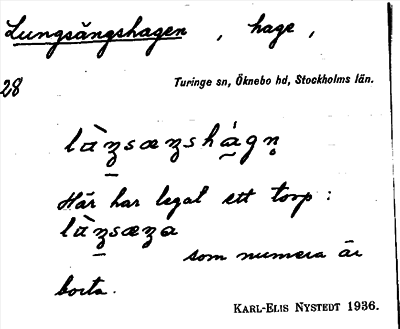 Lungsängshagen, hage,
28
Turinge sn, Öknebo hd, Stockholms län.
Här har legat ett torp:
som numera är
borta.
KARL-ELIS NYSTEDT 1936.